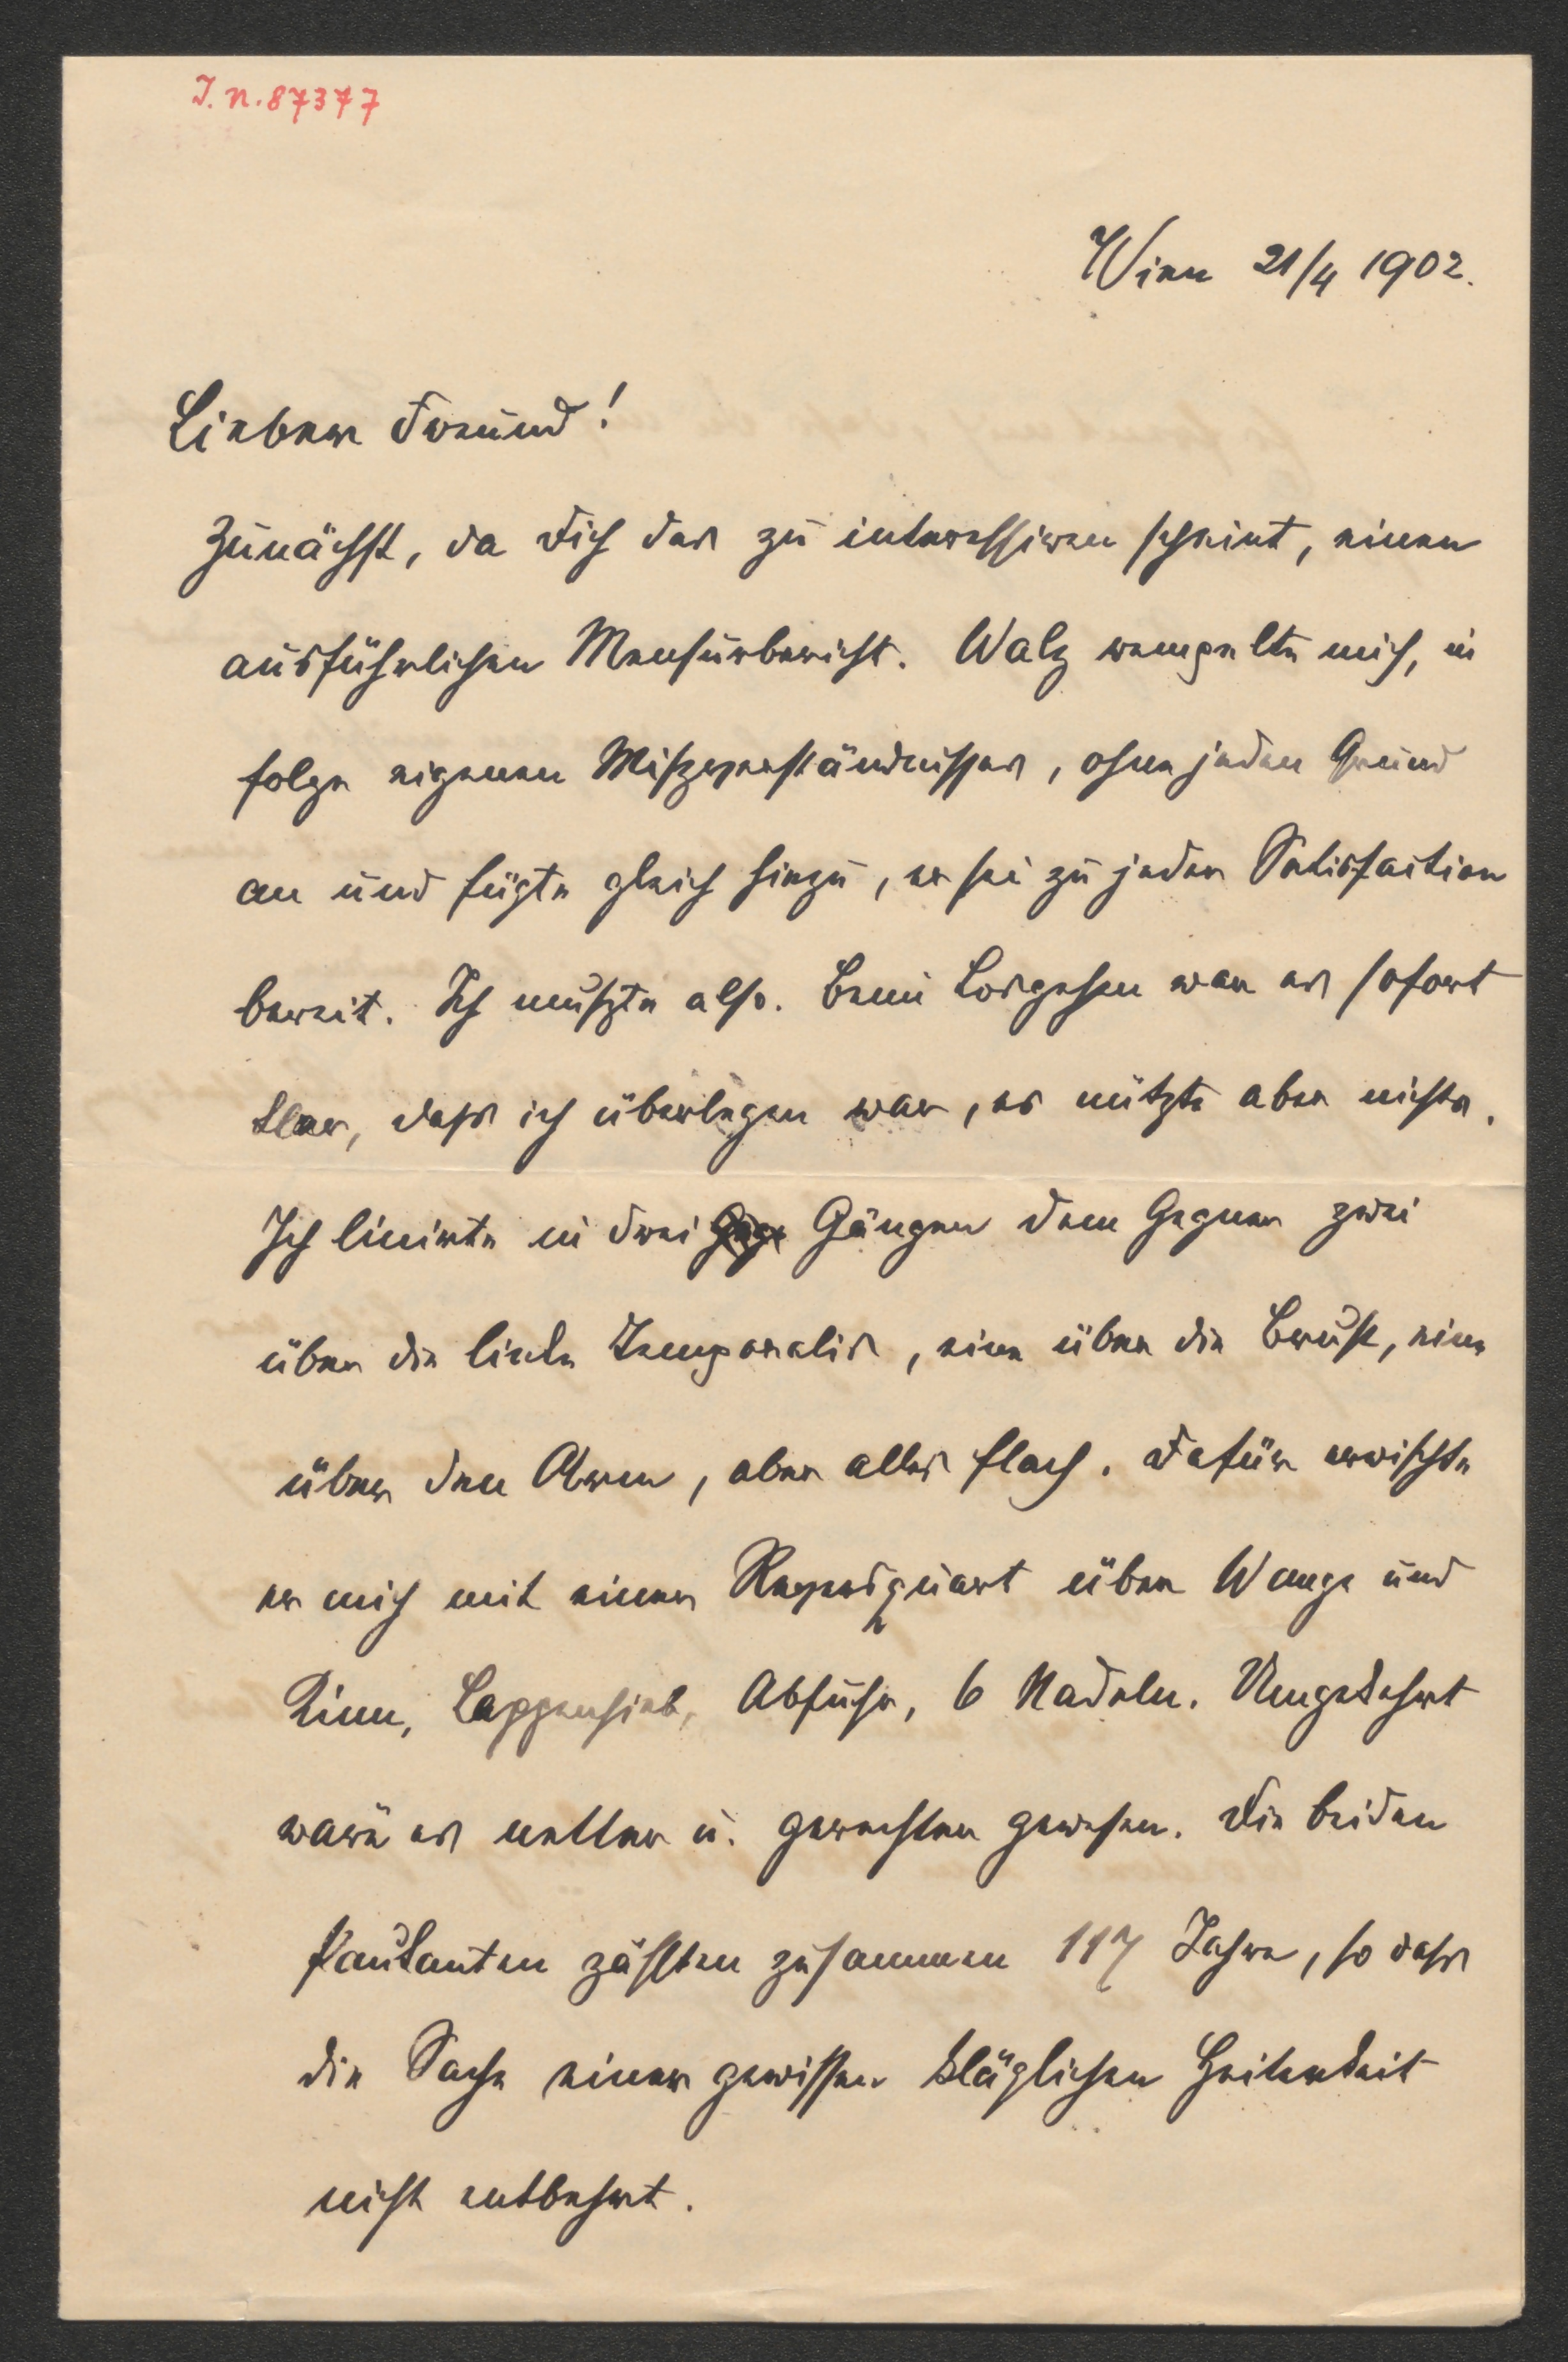 I.N. 87377
Wien 21/4 1902.
Lieber Freund!
Zunächst, da Dich das zu interessiren scheint, einen
ausführlichen Mensurbericht. Walz rempelte mich, in
folge eigenen Miszverständnisses, ohne jeden Grund
an und fügte gleich hinzu, er sei zu jeder Satisfaction
bereit. Ich muszte also. Beim Losgehen war es sofort
klar, dass ich überlegen war, es nützte aber nichts.
Ich linirte in drei Gängen dem Gegner zwei
über die linke Temporalis, eine über die Brust, eine
über den Arm, aber alles flach. Dafür erwischte
er mich mit einer Reversquart über Wange und
Kinn, Lappenhieb, Abfuhr, 6 Nadeln. Umgekehrt
wäre es netter u. gerechter gewesen. Die beiden
Paukanten zählten zusammen 117 Jahre, so dass
die Sache einer gewissen kläglichen Heiterkeit
nicht entbehrt.